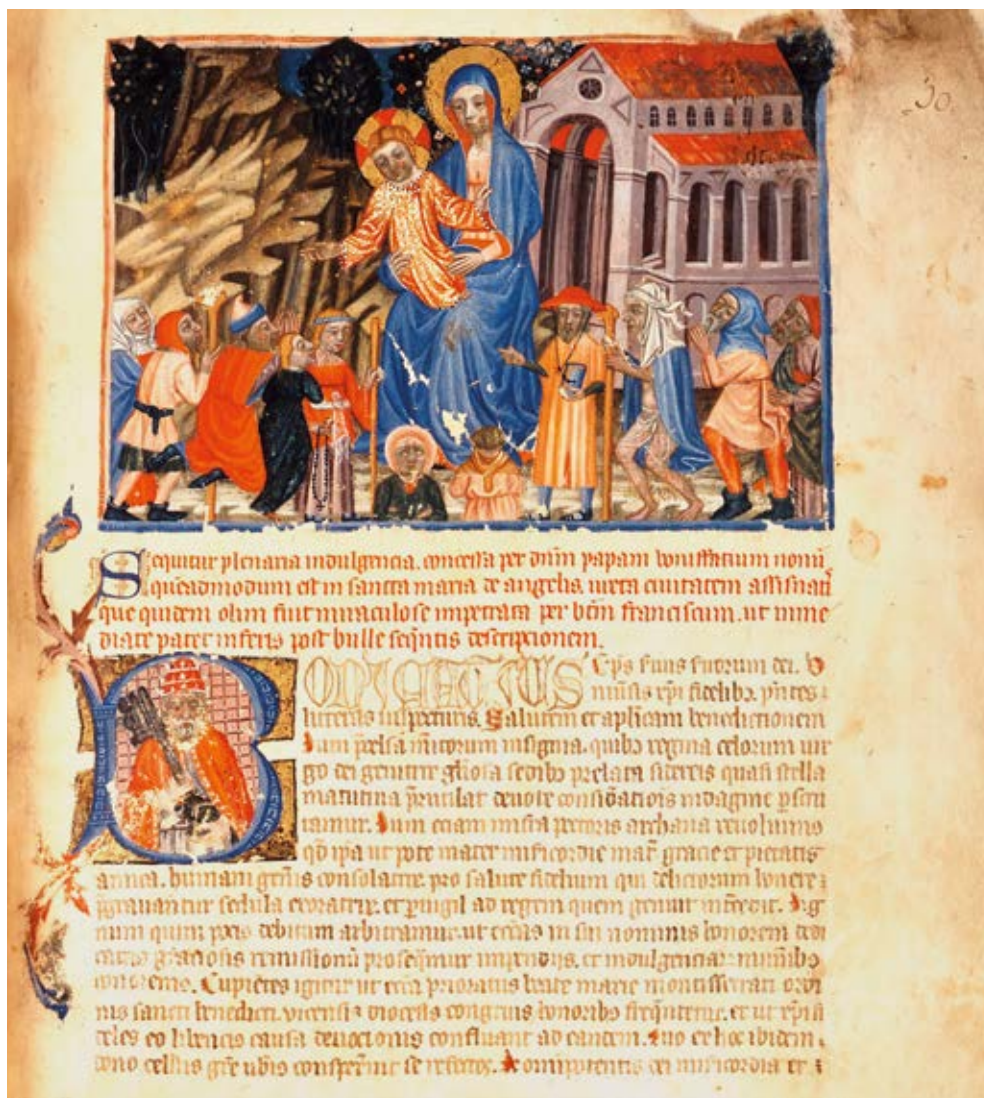 30.
Sequitur plenaria indulgencia. concessa per dnm papam boniffatium nonu
queadmodum est in sancta maria de angelis iuxta ciuitatem assisinati
que quidem olim fuit miraculose impetrata per btm franciscum. ut inme
diate patet inferius post bulle seqntis descripcionem.
BONIFATIUS Eps seruus seruorum dei. V
niuersis xpi fidelibz pntes
litteras inspecturis. Salutem et aplicam benedictionem
Dum pcelsa mitorum insignia. quibz regina celorum uir
go dei genitrix gliosa sedibz prelata sidereis quasi stella
matutina prutilat deuote considatiois indagine pscru
tamur. Dum eciam infra pectoris archana reuoluimus
qd ipa ut pote mater misicordie mat gracie et pietatis
amica. humani gnis consolatrix. pro salute fidelium qui delictorum honere
pgrauantur sedula exoratrix. et puigil ad regem quem genuit intcedit. Dig
num quin pocis debitum arbitramur. ut eccas in sui nominis honorem dedi
catas graciosis remissionu prosequmur impendijs. et indulgenciar munibz
honoremus. Cupietes igitur ut ecca prioratus beate marie montisserrati ordi
nis sancti benedicti. vicensis diocesis congruis honoribz frequtetur. et ut xpi fi
deles eo libencius causa deuocionis confluant ad eandem. quo ex hoc ibidem
dono celestis gre ubius conspexint se refectos. De omnipotentis dei misericordia et